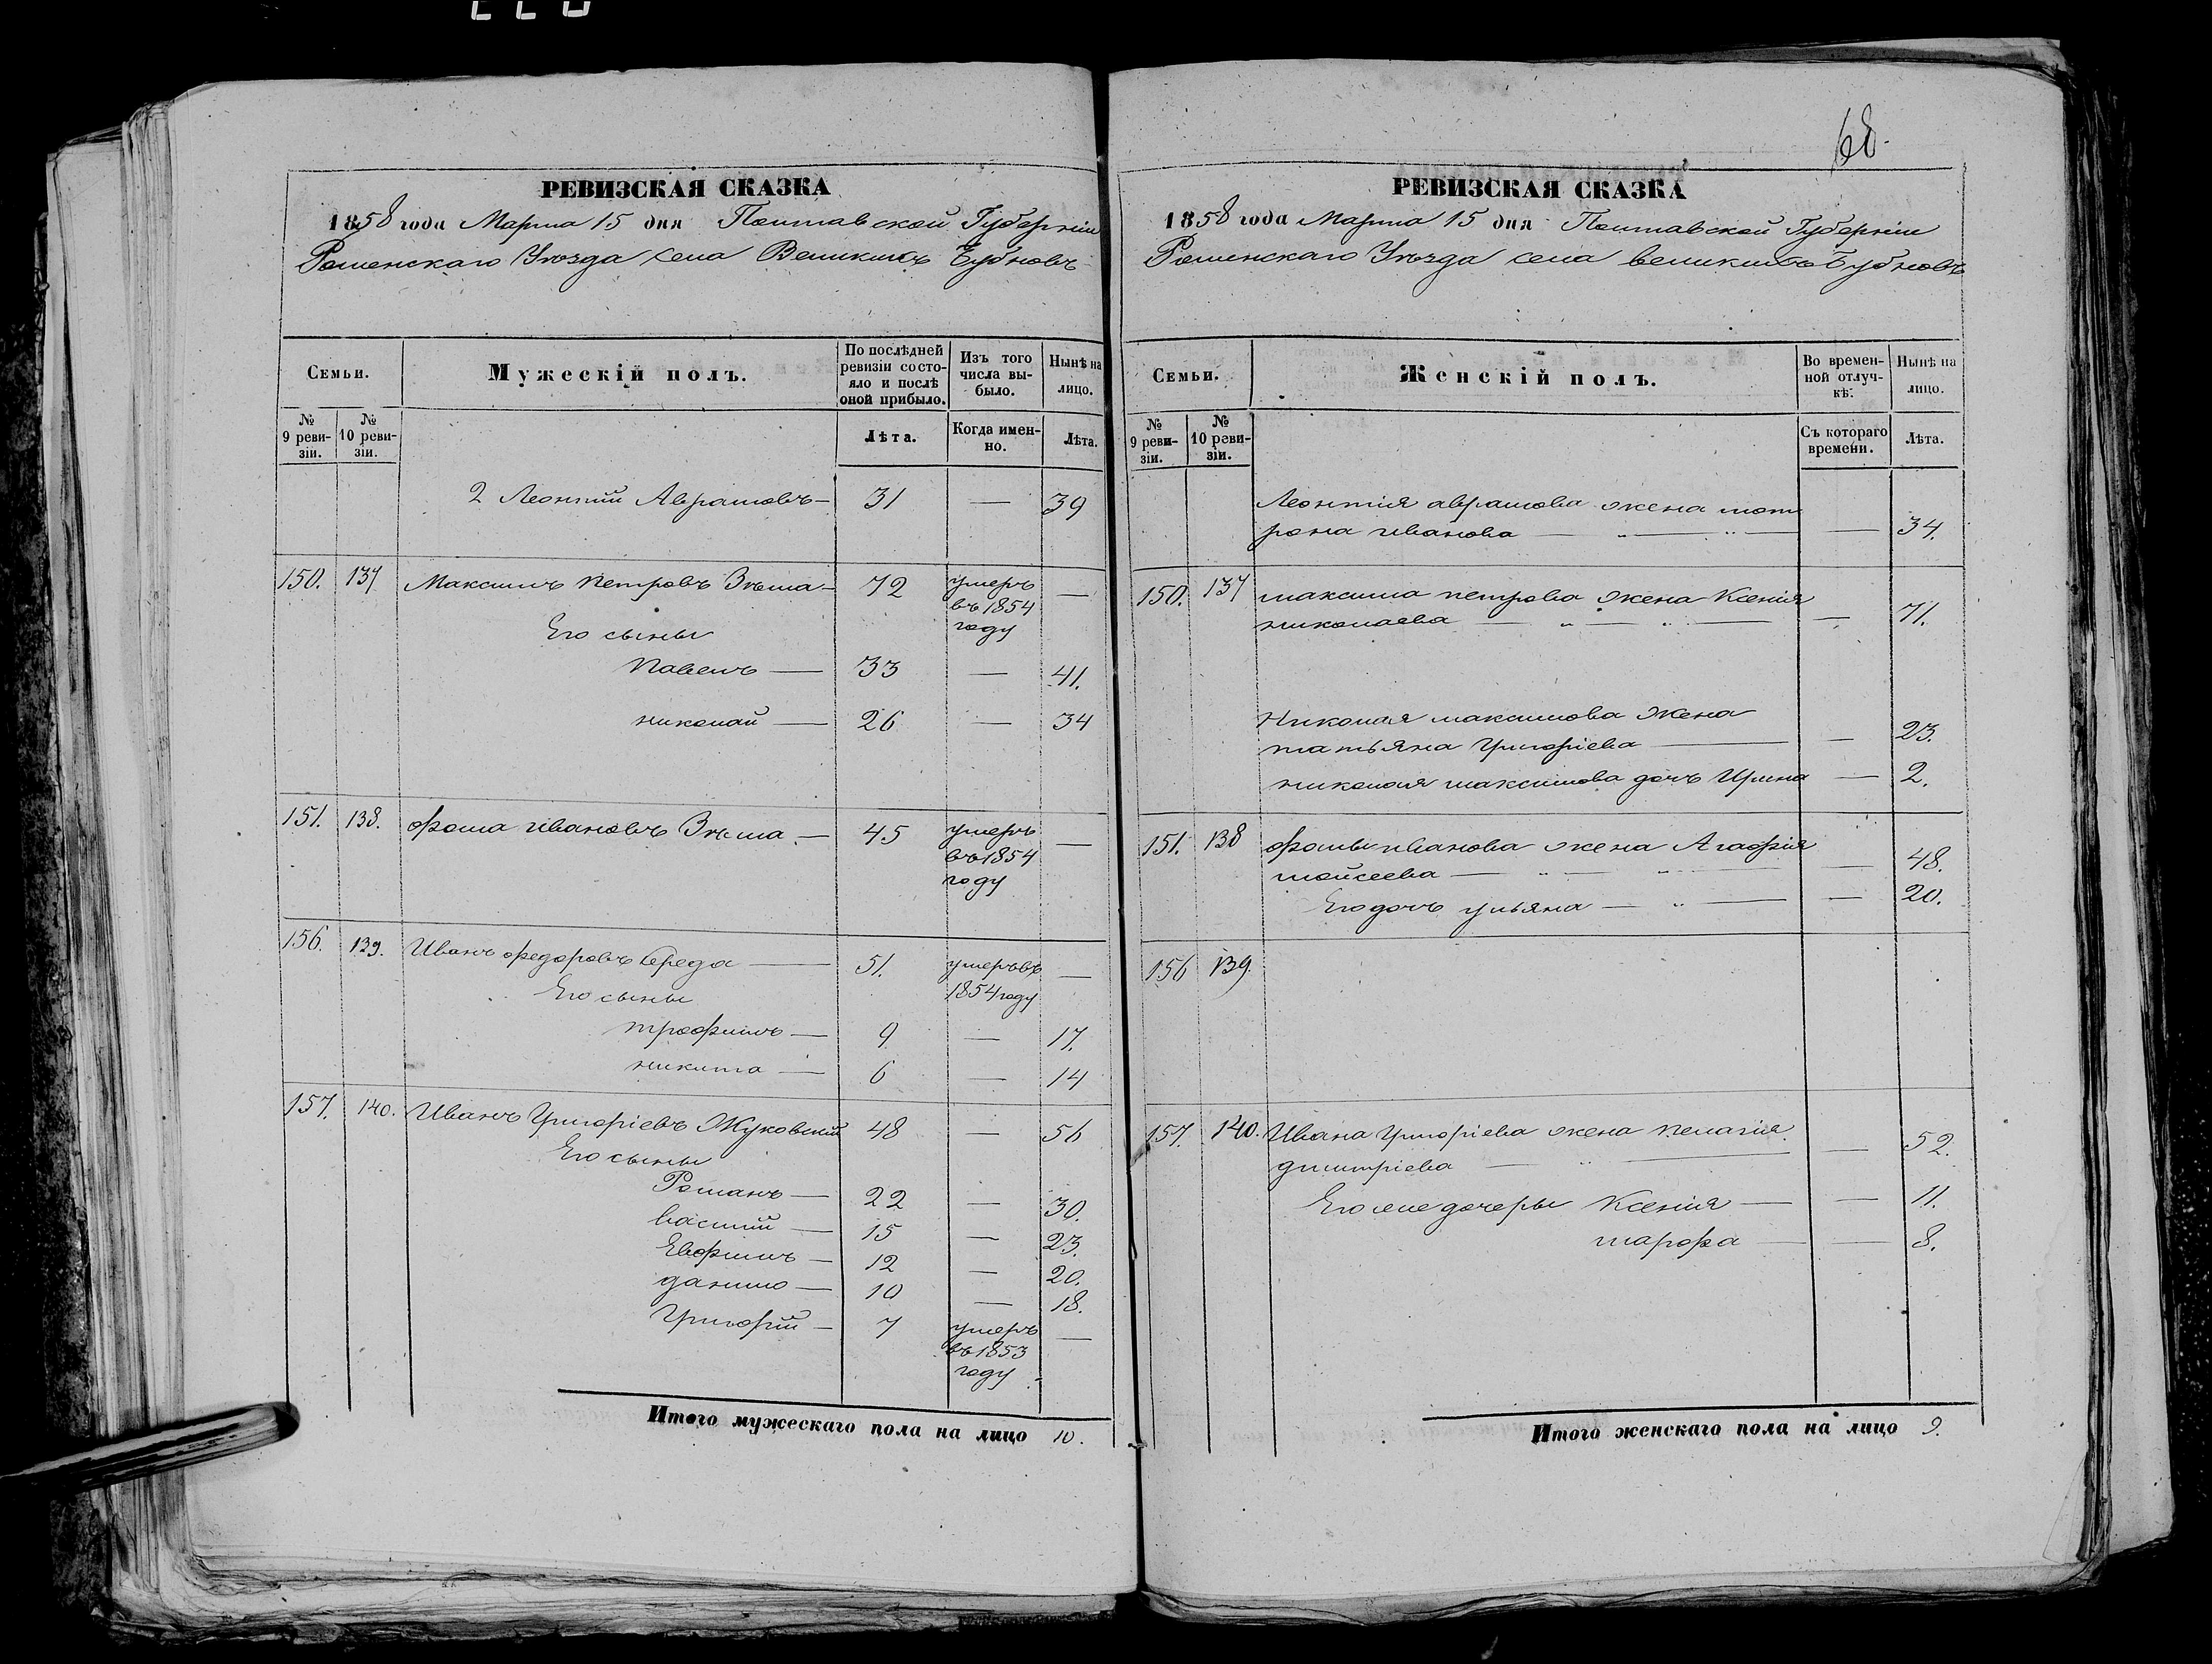 РЕВИЗСКАЯ СКАЗКА
1858 года Марта 15 дня Полтавской Губерніи
Роменскаго Уѣзда села Великихъ Бубновъ
Семьи.
Мужескій полъ.
По послѣдней ревизіи состояло и послѣ оной прибыло.
Изъ того числа выбыло.
Нынѣ на лицо.
№ 9 ревизіи.
№ 10 ревизіи.
Лѣта.
Когда именно.
Лѣта.
2 Леонтий Аврамовъ — 31 — 39
150. 137 Максимъ Петровъ Зѣма — 72 умеръ въ 1854 году —
Его сыны
Павелъ — 33 — 41.
николай — 26 — 34
151. 138. Фома Ивановъ Зѣма — 45 умеръ въ 1854 году —
156. 139. Иванъ Федоровъ Середа — 51. умеръ въ 1854 году —
Его сыны
трофимъ — 9 — 17.
никита — 6 — 14
157. 140. Иванъ Григоріевъ Жуковский 48 — 56
Его сыны
Романъ — 22 — 30.
василий — 15 — 23.
Евфимъ — 12 — 20.
данило — 10 — 18.
Григорій — 7 умеръ въ 1853 году —
Итого мужескаго пола на лицо 10.
68.
РЕВИЗСКАЯ СКАЗКА
1858 года Марта 15 дня Полтавской Губерніи
Роменскаго Уѣзда села великихъ Бубновъ
Семьи.
Женскій полъ.
Во временной отлучкѣ.
Нынѣ на лицо.
№ 9 ревизіи.
№ 10 ревизіи.
Съ котораго времени.
Лѣта.
Леонтія аврамова жена мот
рона иванова — „ — „ — — 34.
150. 137 максима петрова жена Ксенія
николаева — „ — „ — — 71.
Николая максимова жена
татьяна Григоріева — — 23.
николая максимова дочь Ирина — 2.
151. 138 фомы иванова жена Агафія
мойсеева — „ — „ — — 48.
Его дочь ульяна — „ — — 20.
156 139.
157. 140. Ивана Григоріева жена пелагія
димитріева — „ — — 52.
Его же дочеры Ксенія — — 11.
марфа — — 8.
Итого женскаго пола на лицо 9.